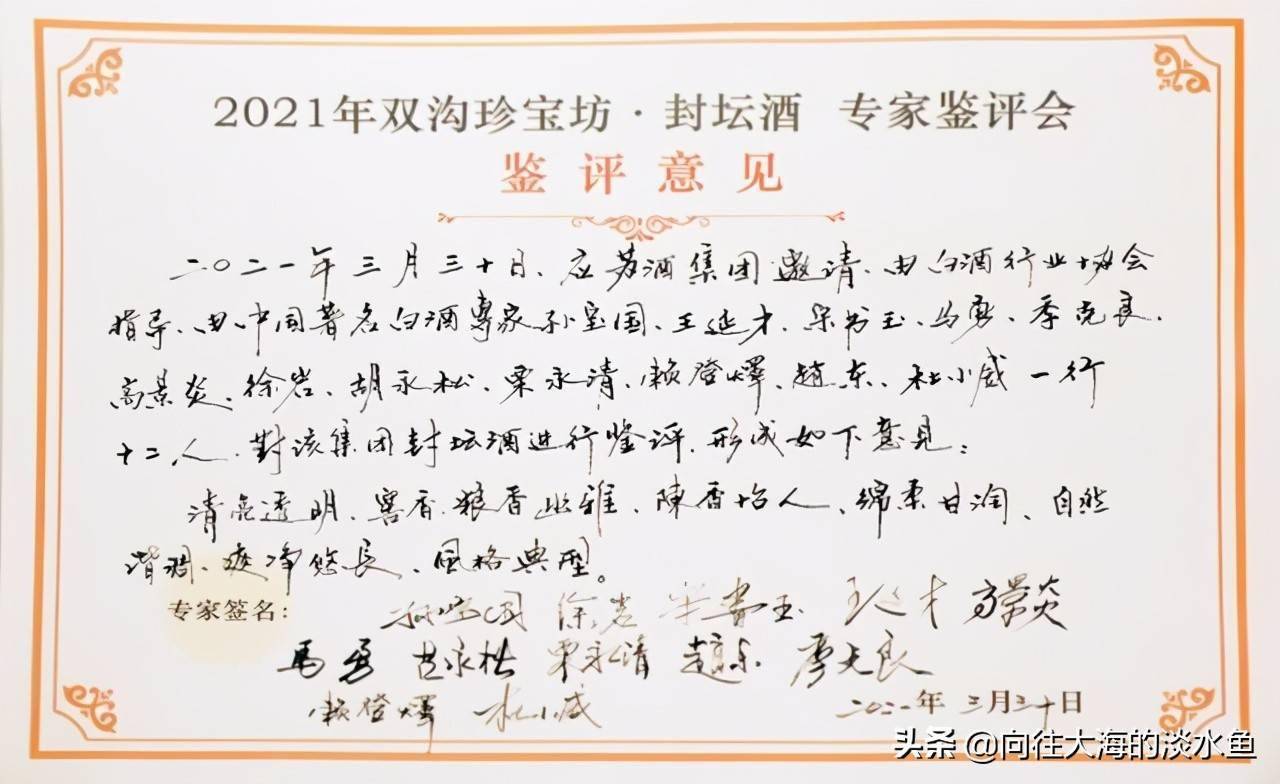 2021年双沟珍宝坊·封坛酒 专家鉴评会
鉴评意见
二〇二一年三月三十日、应苏酒集团邀请、由白酒行业协会
指导、由中国著名白酒專家孙宝国、王延才、宋书玉、马勇、季克良、
高景炎、徐岩、胡永松、栗永清、赖登燡、趙东、杜小威一行
十二人、對该集团封坛酒进行鉴评、形成如下意見：
清亮透明、窖香粮香幽雅、陳香怡人、绵柔甘润、自然
谐调、爽净悠長、風格典型。
专家签名：孙宝国 徐岩 宋書玉 王延才 高景炎
馬勇 胡永松 栗永清 趙东 季克良
赖登燡 杜小威 二〇二一年三月三十日
头条 @向往大海的淡水鱼